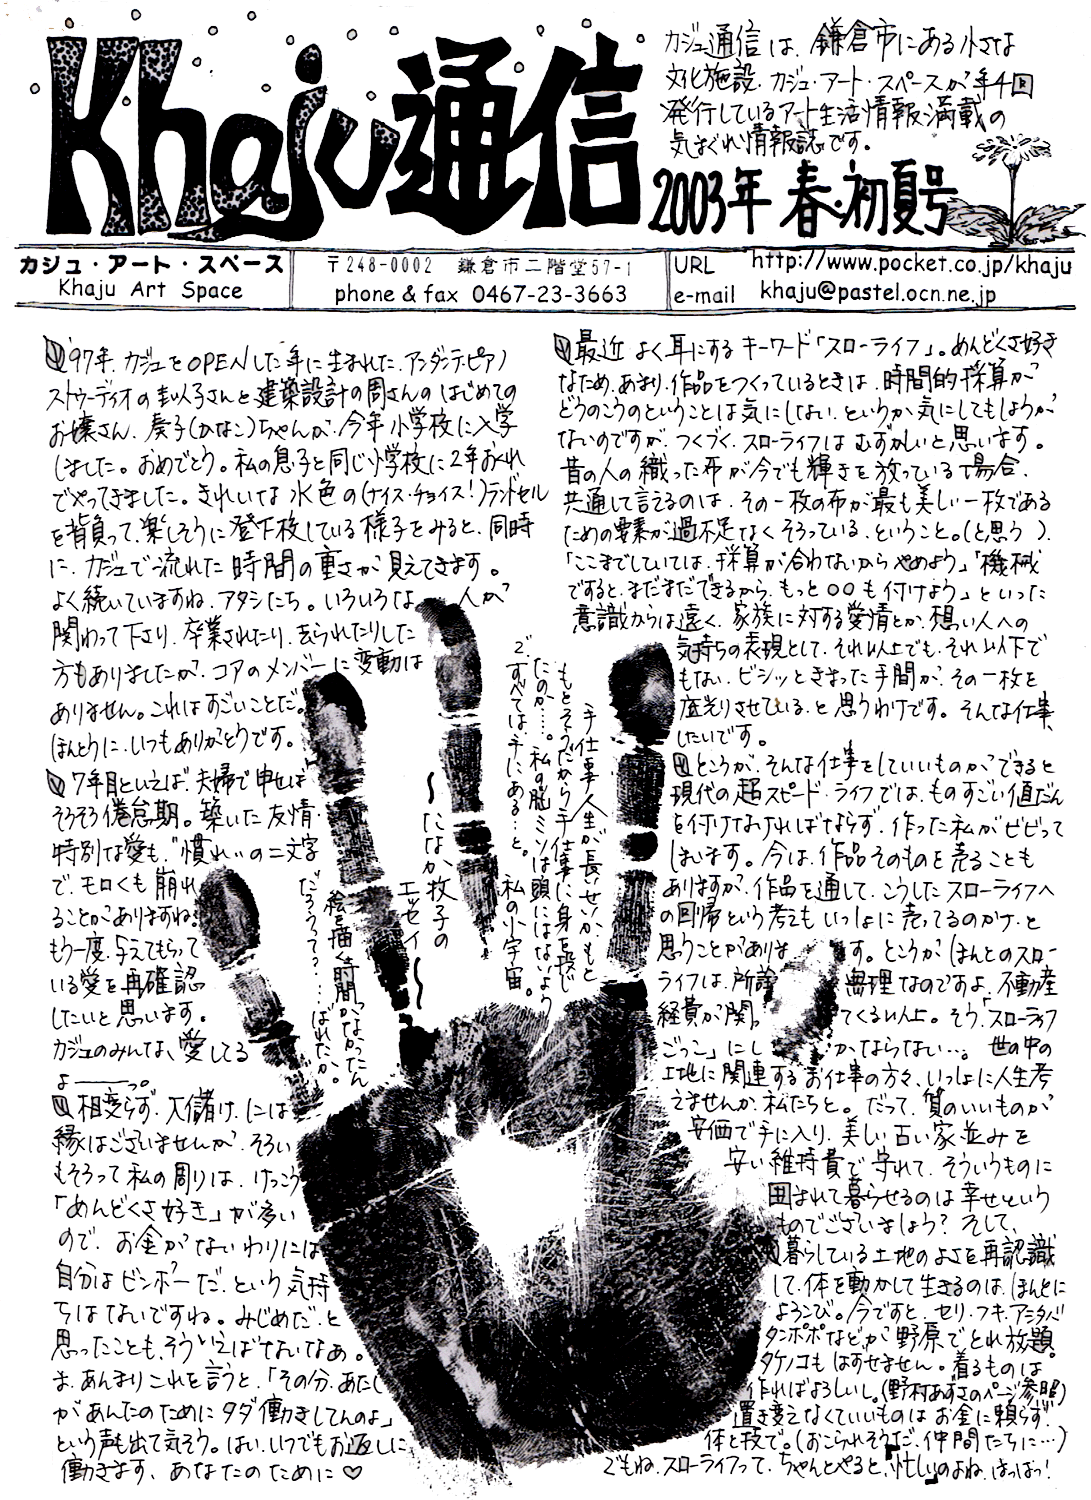 Khaju通信
カジュ通信は、鎌倉市にある小さな
文化施設、カジュ・アート・スペースが年4回
発行しているアート生活情報満載の
気まぐれ情報誌です。
2003年 春・初夏号
カジュ・アート・スペース
Khaju Art Space
〒248-0002 鎌倉市二階堂57-1
phone & fax 0467-23-3663
URL http://www.pocket.co.jp/khaju
e-mail khaju@pastel.ocn.ne.jp
'97年、カジュをOPENした年に生まれた、アンダンテ・ピアノ
ストゥーディオのまり子さんと建築設計の周さんのはじめての
お嬢さん、奏子(かなこ)ちゃんが、今年小学校に入学
しました。おめでとう。私の息子と同じ小学校に2年おくれ
でやってきました。きれいな水色の(ナイス・チョイス!)ランドセル
を背負って、楽しそうに登下校している様子をみると、同時
に、カジュで流れた時間の重さが見えてきます。
よく続いていますね、アタシたち。いろいろな人が
関わって下さり、卒業されたり、去られたりした
方もありましたが、コアのメンバーに変動は
ありません。これはすごいことだ。
ほんとうに、いつもありがとうです。
7年目といえば、夫婦で申せば
そろそろ倦怠期。築いた友情・
特別な愛も、“慣れ”の二文字
で、モロくも崩れ
ることがありますね。
もう一度、与えてもらって
いる愛を再確認
したいと思います。
カジュのみんな、愛してる
よ――っ。
相変らず、入儲け、には
縁はございませんが、そろい
もそろって私の周りは、けっこう
「めんどくさ好き」が多い
ので、お金がないわりには
自分はビンボーだ、という気持
ちはないですね。みじめだ、と
思ったことも、そういえばないなあ。
ま、あんまりこれを言うと、「その分、あたし
があんたのためにタダ働きしてんのよ」
という声も出て気そう。はい、いつでもお返しに
働きます、あなたのために♡
最近よく耳にするキーワード「スローライフ」。めんどくさ好き
なため、あまり、作品をつくっているときは、時間的採算が
どうのこうのということは気にしない、というか気にしてもしょうが
ないのですが、つくづく、スローライフはむずかしいと思います。
昔の人の織った布が今でも輝きを放っている場合、
共通して言えるのは、その一枚の布が最も美しい一枚である
ための要素が過不足なくそろっている、ということ。(と思う)
「ここまでしていては、採算が合わないからやめよう」「機械
ですると、まだまだできるから、もっと○○も付けよう」といった
意識からは遠く、家族に対する愛情とか、想い人への
気持ちの表現として、それ以上でも、それ以下で
もない、ビシッときまった手間が、その一枚を
底光りさせている、と思うわけです。そんな仕事
したいです。
ところが、そんな仕事をしていいものができると
現代の超スピード・ライフでは、ものすごい値だん
を付けなければならず、作った私がビビって
しまいます。今は、作品そのものを売ることも
ありますが、作品を通して、こうしたスローライフへ
の回帰という考えもいっしょに売ってるのかナ、と
思うことがあります。ところが、ほんとのスロー
ライフは、所詮無理なのですよ、不動産
経費が関っ てくる以上。そう、「スローライフ
ごっこ」にし かならない…。世の中の
土地に関連するお仕事の方々、いっしょに人生考
えませんか、私たちと。だって、質のいいものが
安価で手に入り、美しい古い家並みを
安い維持費で守れて、そういうものに
囲まれて暮らせるのは幸せという
ものでございましょう? そして、
暮らしている土地のよさを再認識
して、体を動かして生きるのは、ほんとに
よろこび。今ですと、セリ・フキ・アシタバ
タンポポなどが野原でとれ放題。
タケノコもはずせません。着るものは
作ればよろしいし。(野村あずさのページ参照)
置き変えなくていいものはお金に頼らず、
体と技で。(おこられそうだ、仲間たちに…)
でもね、スローライフって、ちゃんとやると、「忙しい」のよね、はっはっ!
手仕事人生が長いせいか、もと
もとそうだから手仕事に身を投じ
たのか…。私の脳ミソは頭にはないよう
で、すべては手にある…と。私の小宇宙。
～たなか牧子の
エッセイ～
絵を描く時間がなかったん
だろうって?……ばれたか。